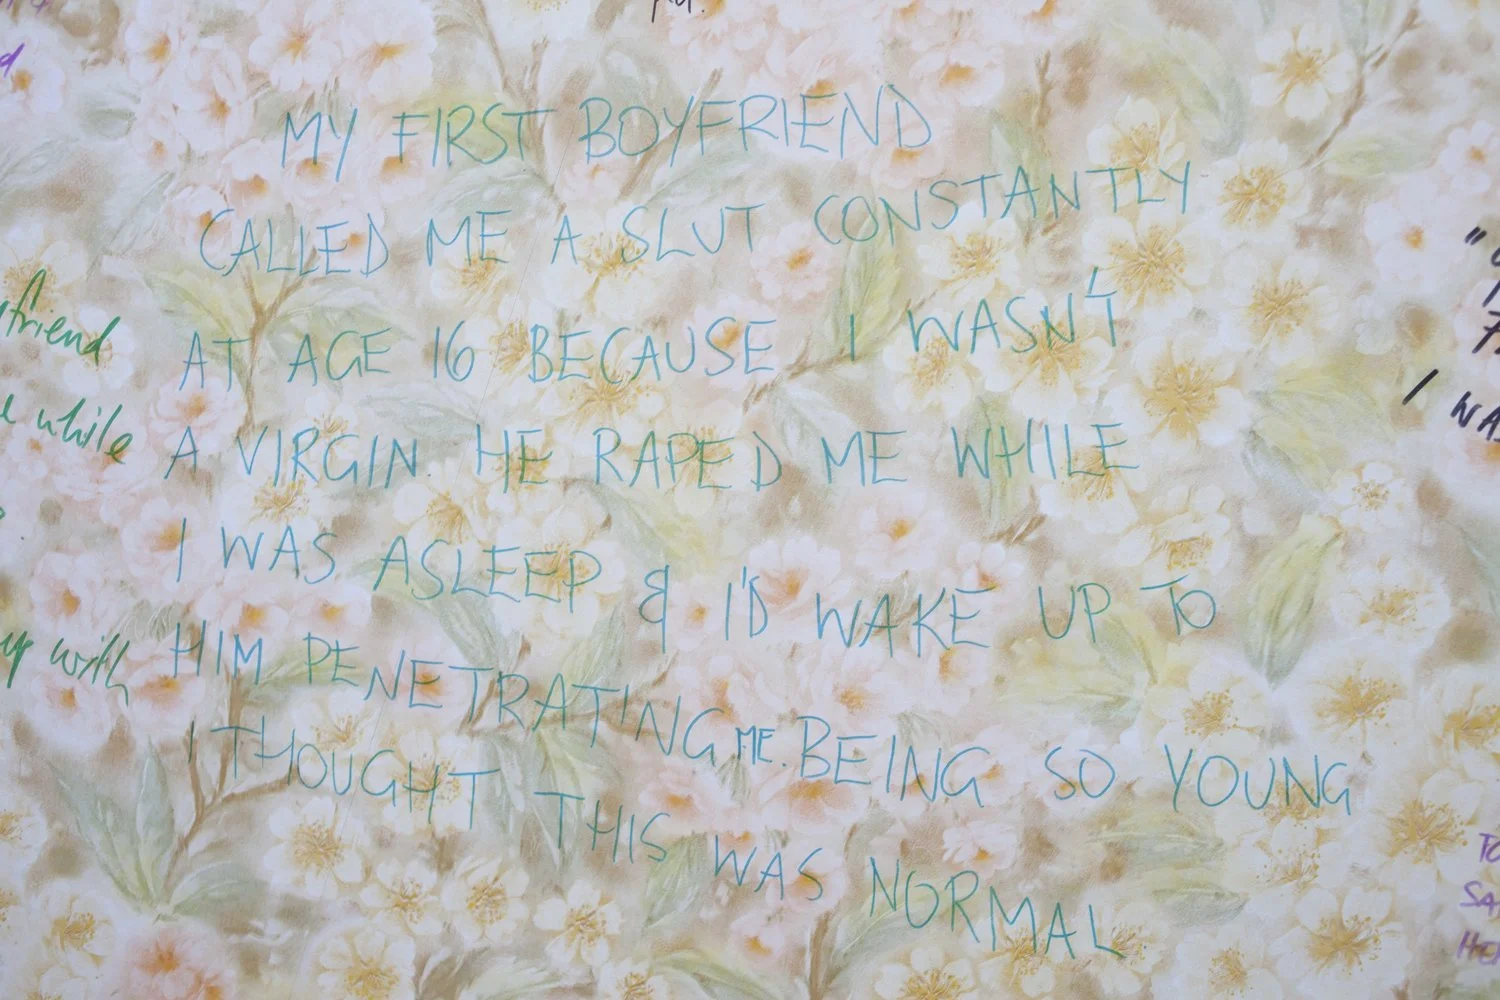 MY FIRST BOYFRIEND
CALLED ME A SLUT CONSTANTLY
AT AGE 16 BECAUSE I WASN'T
A VIRGIN. HE RAPED ME WHILE
I WAS ASLEEP & I'D WAKE UP TO
HIM PENETRATING ME. BEING SO YOUNG
I THOUGHT THIS WAS NORMAL
while
with
I WAS